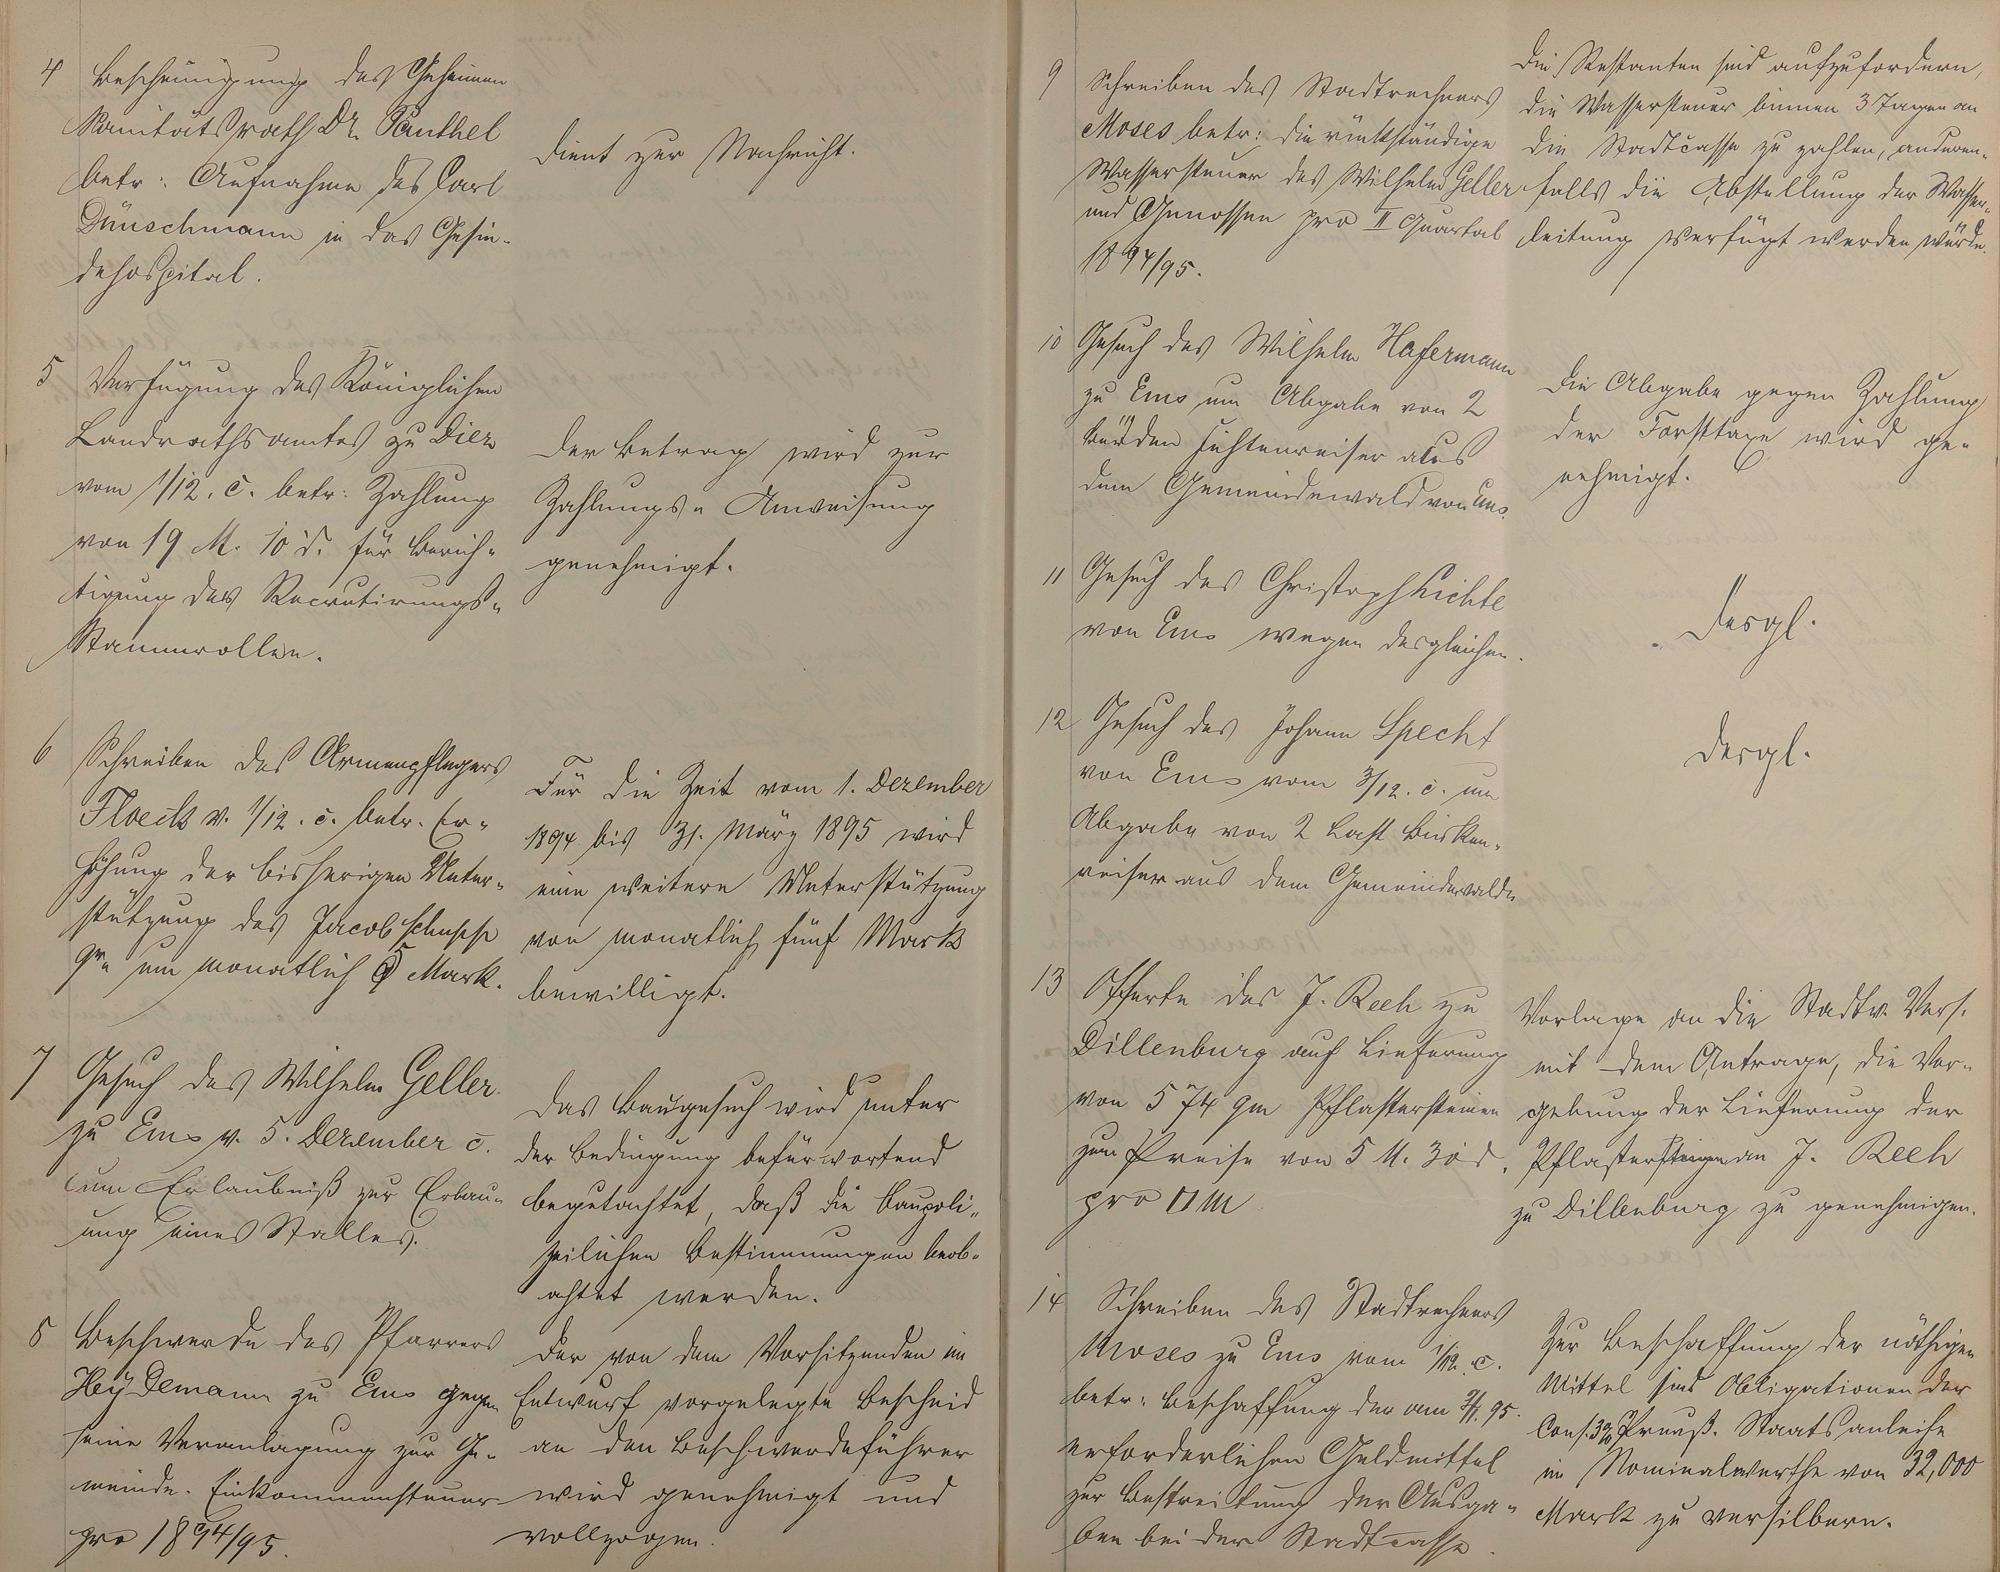 4 Bescheinigung des Geheimen
Sanitätsrath Dr. Panthel
betr: Aufnahme des Carl
Dünschmann in das Gesin-
dehospital.
Dient zur Nachricht.
5 Verfügung des Königlichen
Landrathsamtes zu Diez
vom 1/12. c. betr: Zahlung
von 19 M. 10 d. für Berich-
tigung des Recrutirungs-
Stammrollen.
Der Betrag wird zur
Zahlungs- Anweisung
genehmigt.
6 Schreiben des Armenpflegers
Floeck v. 1/12. c. betr. Er-
höhung der bisherigen Unter-
stützung des Jacob Schupp
um monatlich 5 Mark.
Für die Zeit vom 1. Dezember
1894 bis 31. März 1895 wird
eine weitere Unterstützung
von monatlich fünf Mark
bewilligt.
7 Gesuch des Wilhelm Geller
zu Ems v. 5. Dezember c.
um Erlaubniß zur Erbau-
ung eines Stalles.
Das Baugesuch wird unter
der Bedingung befürwortend
begutachtet, daß die baupoli-
zeilichen Bestimmungen beob-
achtet werden.
8 Beschwerde des Pfarrers
Heydemann zu Ems gegen
seine Veranlagung zur Ge-
meinde- Einkommensteuer
pro 1894/95.
Der von dem Vorsitzenden im
Entwurf vorgelegte Bescheid
an den Beschwerdeführer
wird genehmigt und
vollzogen.
9 Schreiben des Stadtrechners
Moses betr: die rückständige
Wassersteuer des Wilhelm Geller
und Genossen pro II Quartal
1894/95.
Die Restanten sind aufzufordern,
die Wassersteuer binnen 3 Tagen an
die Stadtcasse zu zahlen, anderen-
falls die Abstellung der Wasser-
leitung verfügt werden würde.
10 Gesuch des Wilhelm Hafermann
zu Ems um Abgabe von 2
Bürden Fichtenreiser aus
dem Gemeindewald von Ems.
Die Abgabe gegen Zahlung
der Forsttaxe wird ge-
nehmigt.
11 Gesuch des Christoph Lichte
von Ems wegen desgleichen.
desgl.
12 Gesuch des Johann Specht
von Ems vom 3/12. c. um
Abgabe von 2 Last Birken-
reiser aus dem Gemeindewalde
desgl.
13 Offerte des J. Rech zu
Dillenburg auf Lieferung
von 574 qm Pflastersteinen
zum Preise von 5 M. 30 d.
pro □ M
Vorlage an die Stadtv. Vers.
mit dem Antrage, die Ver-
gebung der Lieferung der
Pflastersteine an J. Rech
zu Dillenburg zu genehmigen.
14 Schreiben des Stadtrechners
Moses zu Ems vom 1/12. c.
betr: Beschaffung der am 2/1. 95.
erforderlichen Geldmittel
zur Bestreitung der Ausga-
ben bei der Stadtcasse.
Zur Beschaffung der nöthigen
Mittel sind Obligationen der
Cons. 3% Preuß. Staatsanleihe
im Nominalwerthe von 32,000
Mark zu versilbern.